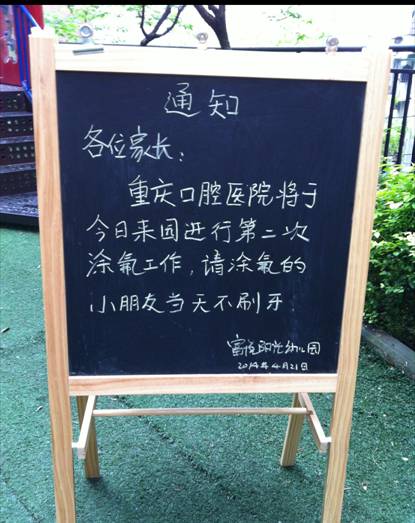 通知
各位家长:
重庆口腔医院将于
今日来园进行第二次
涂氟工作,请涂氟的
小朋友当天不刷牙.
富悦阳光幼儿园
2014年4月21日